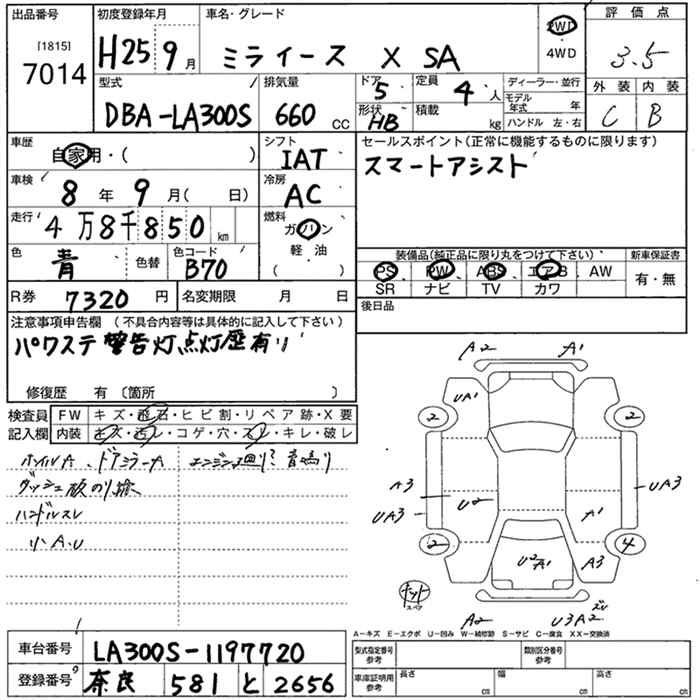 出品番号
[1815]
7014
初度登録年月
H25 9月
車名・グレード
ミライース X SA
2WD
4WD
評価点
3.5
外装 内装
C B
型式
DBA-LA300S
排気量
660 CC
ドア
5
形状
HB
定員
4人
積載
kg
ディーラー・並行
モデル年式 年
ハンドル 左・右
車歴
自家用・( )
シフト
IAT
セールスポイント(正常に機能するものに限ります)
スマートアシスト
車検
8年 9月( 日)
冷房
AC
走行
4万8千850km
燃料
ガソリン
軽・油
( )
色
青
色替
色コード
B70
装備品(純正品に限り丸をつけて下さい)
新車保証書
PS PW ABS エアB AW
有・無
SR ナビ TV カワ
R券 7320円
名変期限 月 日
後日品
注意事項申告欄 (不具合内容等は具体的に記入して下さい)
パワステ警告灯点灯歴有り
修復歴 有 〔箇所 〕
検査員
記入欄
FW キズ・飛石・ヒビ割・リペア跡・X要
内装 キズ・汚レ・コゲ・穴・スレ・キレ・破レ
ホイルA、ドアミラーA
エンジン回り?音鳴り
ダッシュ
ハンドルスレ
リ、A.U
A2 A1
UA1
2 2
A3
UA3
U2
UA3
A1
2 4
U2/A1
A3
ナット
スペア
A2 U3A2
A-キズ E-エクボ U-凹み W-補修跡 S-サビ C-腐食 XX-交換済
車台番号 LA300S-1197720
登録番号 奈良 581 と 2656
型式指定番号
参考
類別区分番号
参考
車庫証明用
参考
長さ cm
幅 cm
高さ cm